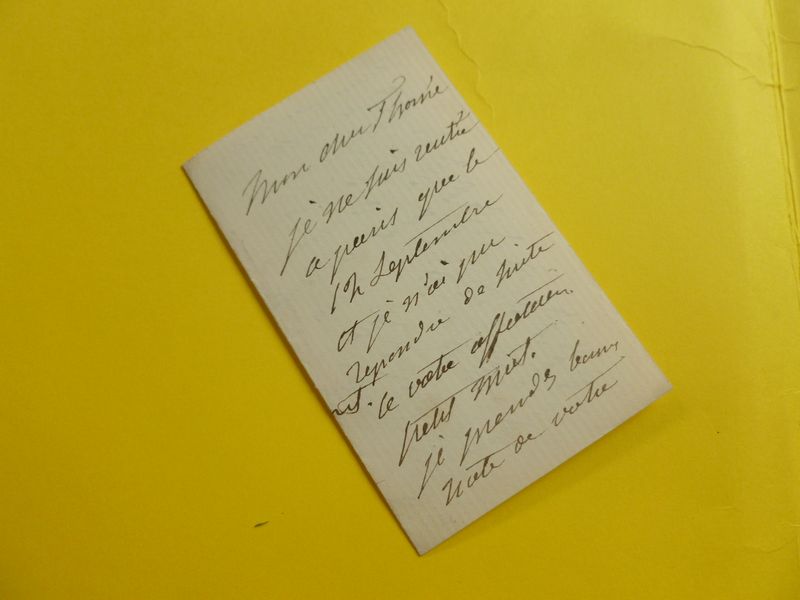 Mon cher Thomé
je ne suis rentré
a paris que le
Septembre
et je n'ai pu
repondre de suite
a votre affectueux
petit mot.
je prends bonne
note de votre